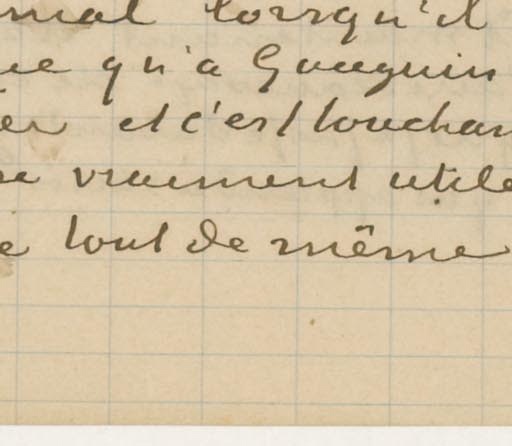 mal lorsqu'il
ue qu'à Gauguin
er et c'est touchan
se vraiment utile
e tout de même